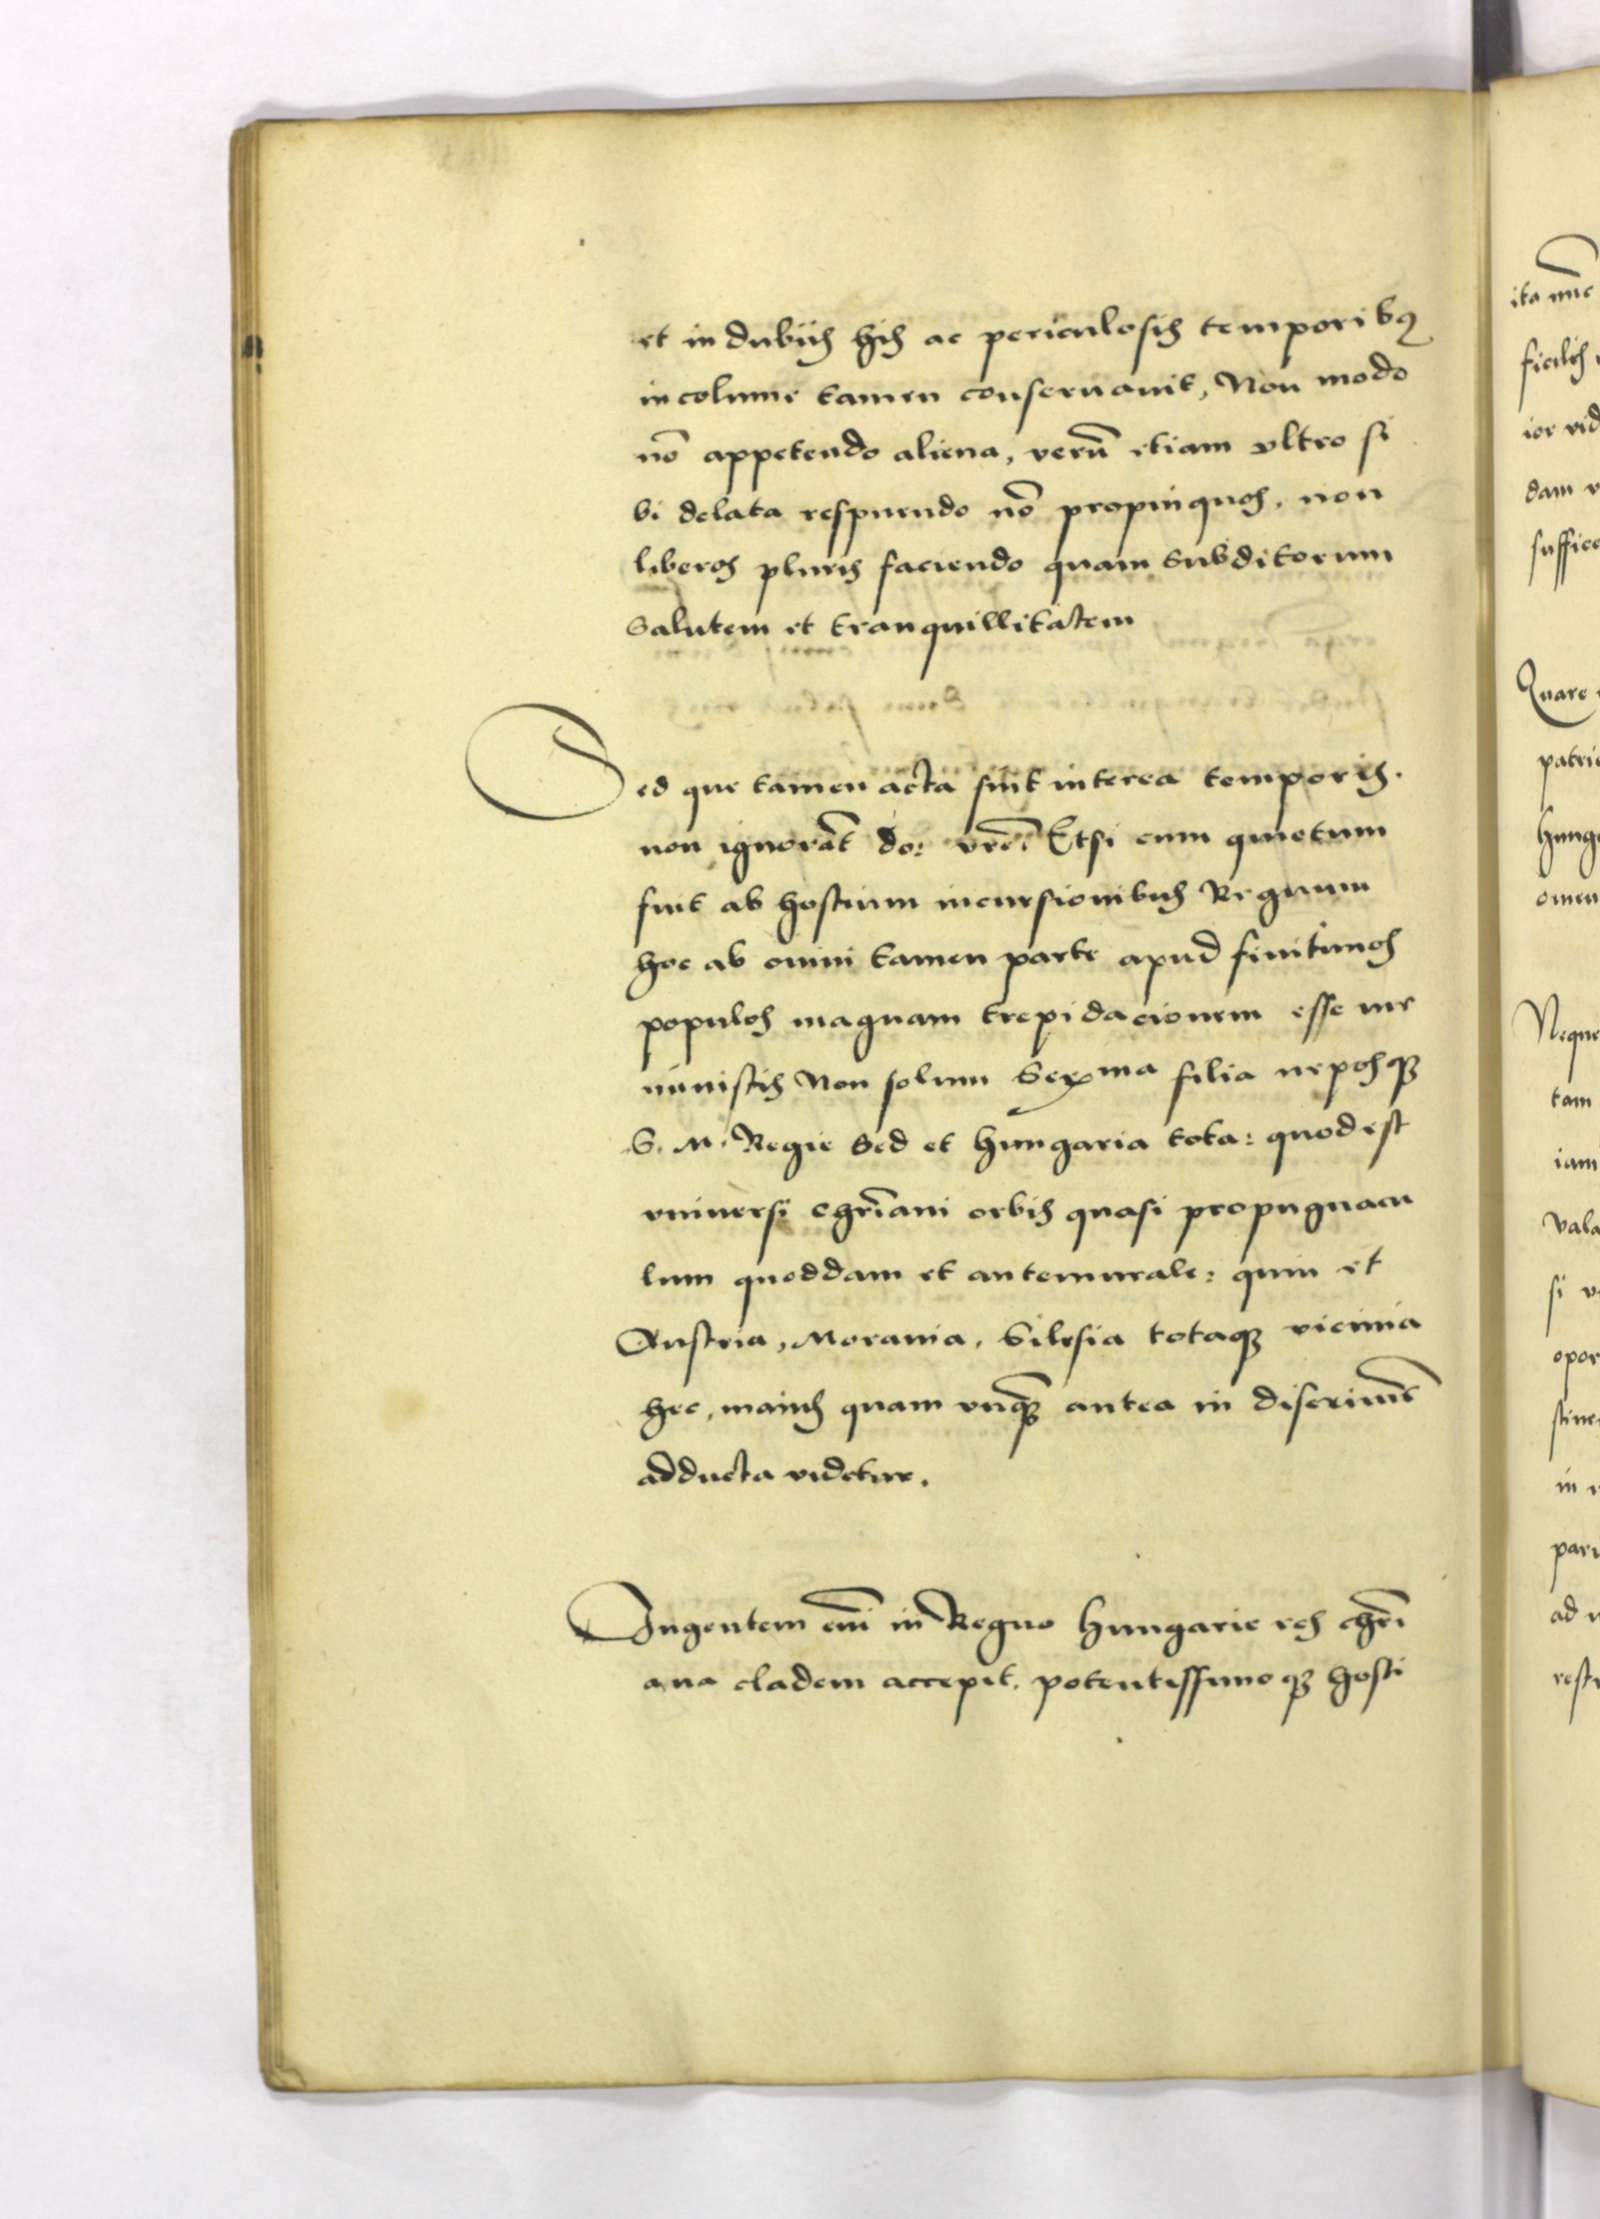 et in dubiis his ac periculosis temporibꝰ
incolume tamen conseruauit, Non modo
nō appetendo aliena, verū etiam vltro si
bi delata respuendo nō propinquos, non
liberos pluris faciendo quam Subditorum
Salutem et tranquillitatem
Sed que tamen acta sint interea temporis.
non ignorāt do: vrē: Etsi cum quietum
fuit ab hostium incursionibus Regnum
hoc ab omni tamen parte apud finitimos
populos magnam trepidacionem esse me
ministis Non solum Serma filia neposqꝫ
S. M. Regie Sed et Hungaria tota: quod est
vniuersi chrīani orbis quasi propugnacu
lum quoddam et antemurale: quin et
Austria, Morauia, Silesia totaqꝫ vicinia
hec, maius quam vnqꝫ̄ antea in discrimē
adducta videtur.
Ingentem em̄ in Regno Hungarie res chrī
ana cladem accepit, potentissimoqꝫ hosti
ita nūc
dam
Quare
patrie
Hunga
Neque
tam
iam
vala
si
opor
in
ad